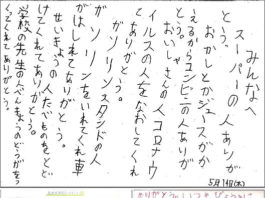 みんなへ
スーパーの人ありが
とう。
おかしとかジュースがか
えるからコンビニの人ありが
とう。
おいしゃさんの人コロナウ
イルスの人をなおしてくれ
てありがとう。
ガソリンスタンドの人
ガソリンをいれてくれ車
がはしれてありがとう。
せいきょうの人たべものをとど
けてくれてありがとう。
学校の先生の人べんきょうのどうがをつ
くってくれてありがとう。
5月14日(木)